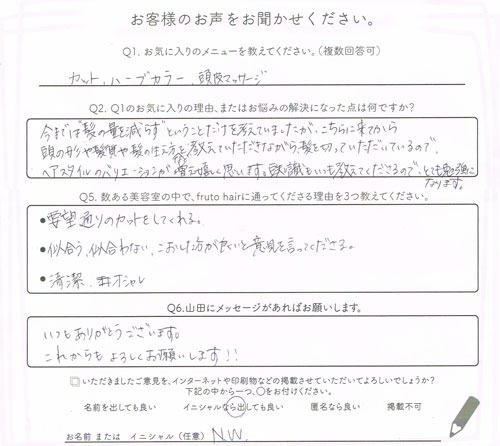 お客様のお声をお聞かせください。
Q1. お気に入りのメニューを教えてください。(複数回答可)
カット、ハーブカラー、頭皮マッサージ
Q2. Q1のお気に入りの理由、またはお悩みの解決になった点は何ですか?
今までは"髪の量を減らす"ということだけを考えていましたが、こちらに来てから
頭の形や髪質や髪の生え方を教えていただきながら、髪を切っていただいているので、
ヘアスタイルのバリエーションが増え嬉しく思います。豆知識もいつも教えてくださるので、とても勉強に
なります。
Q5. 数ある美容室の中で、fruto hairに通ってくださる理由を3つ教えてください。
●要望通りのカットをしてくれる。
●似合う、似合わない、こおした方が良いと意見を言ってくださる。
●清潔、オシャレ
Q6.山田にメッセージがあればお願いします。
いつもありがとうございます。
これからもよろしくお願いします!!
いただきましたご意見を、インターネットや印刷物などの掲載させていただいてよろしいでしょうか?
下記の中から一つ、○をお付けください。
名前を出しても良い イニシャルなら出しても良い 匿名なら良い 掲載不可
お名前 または イニシャル (任意) N.W.